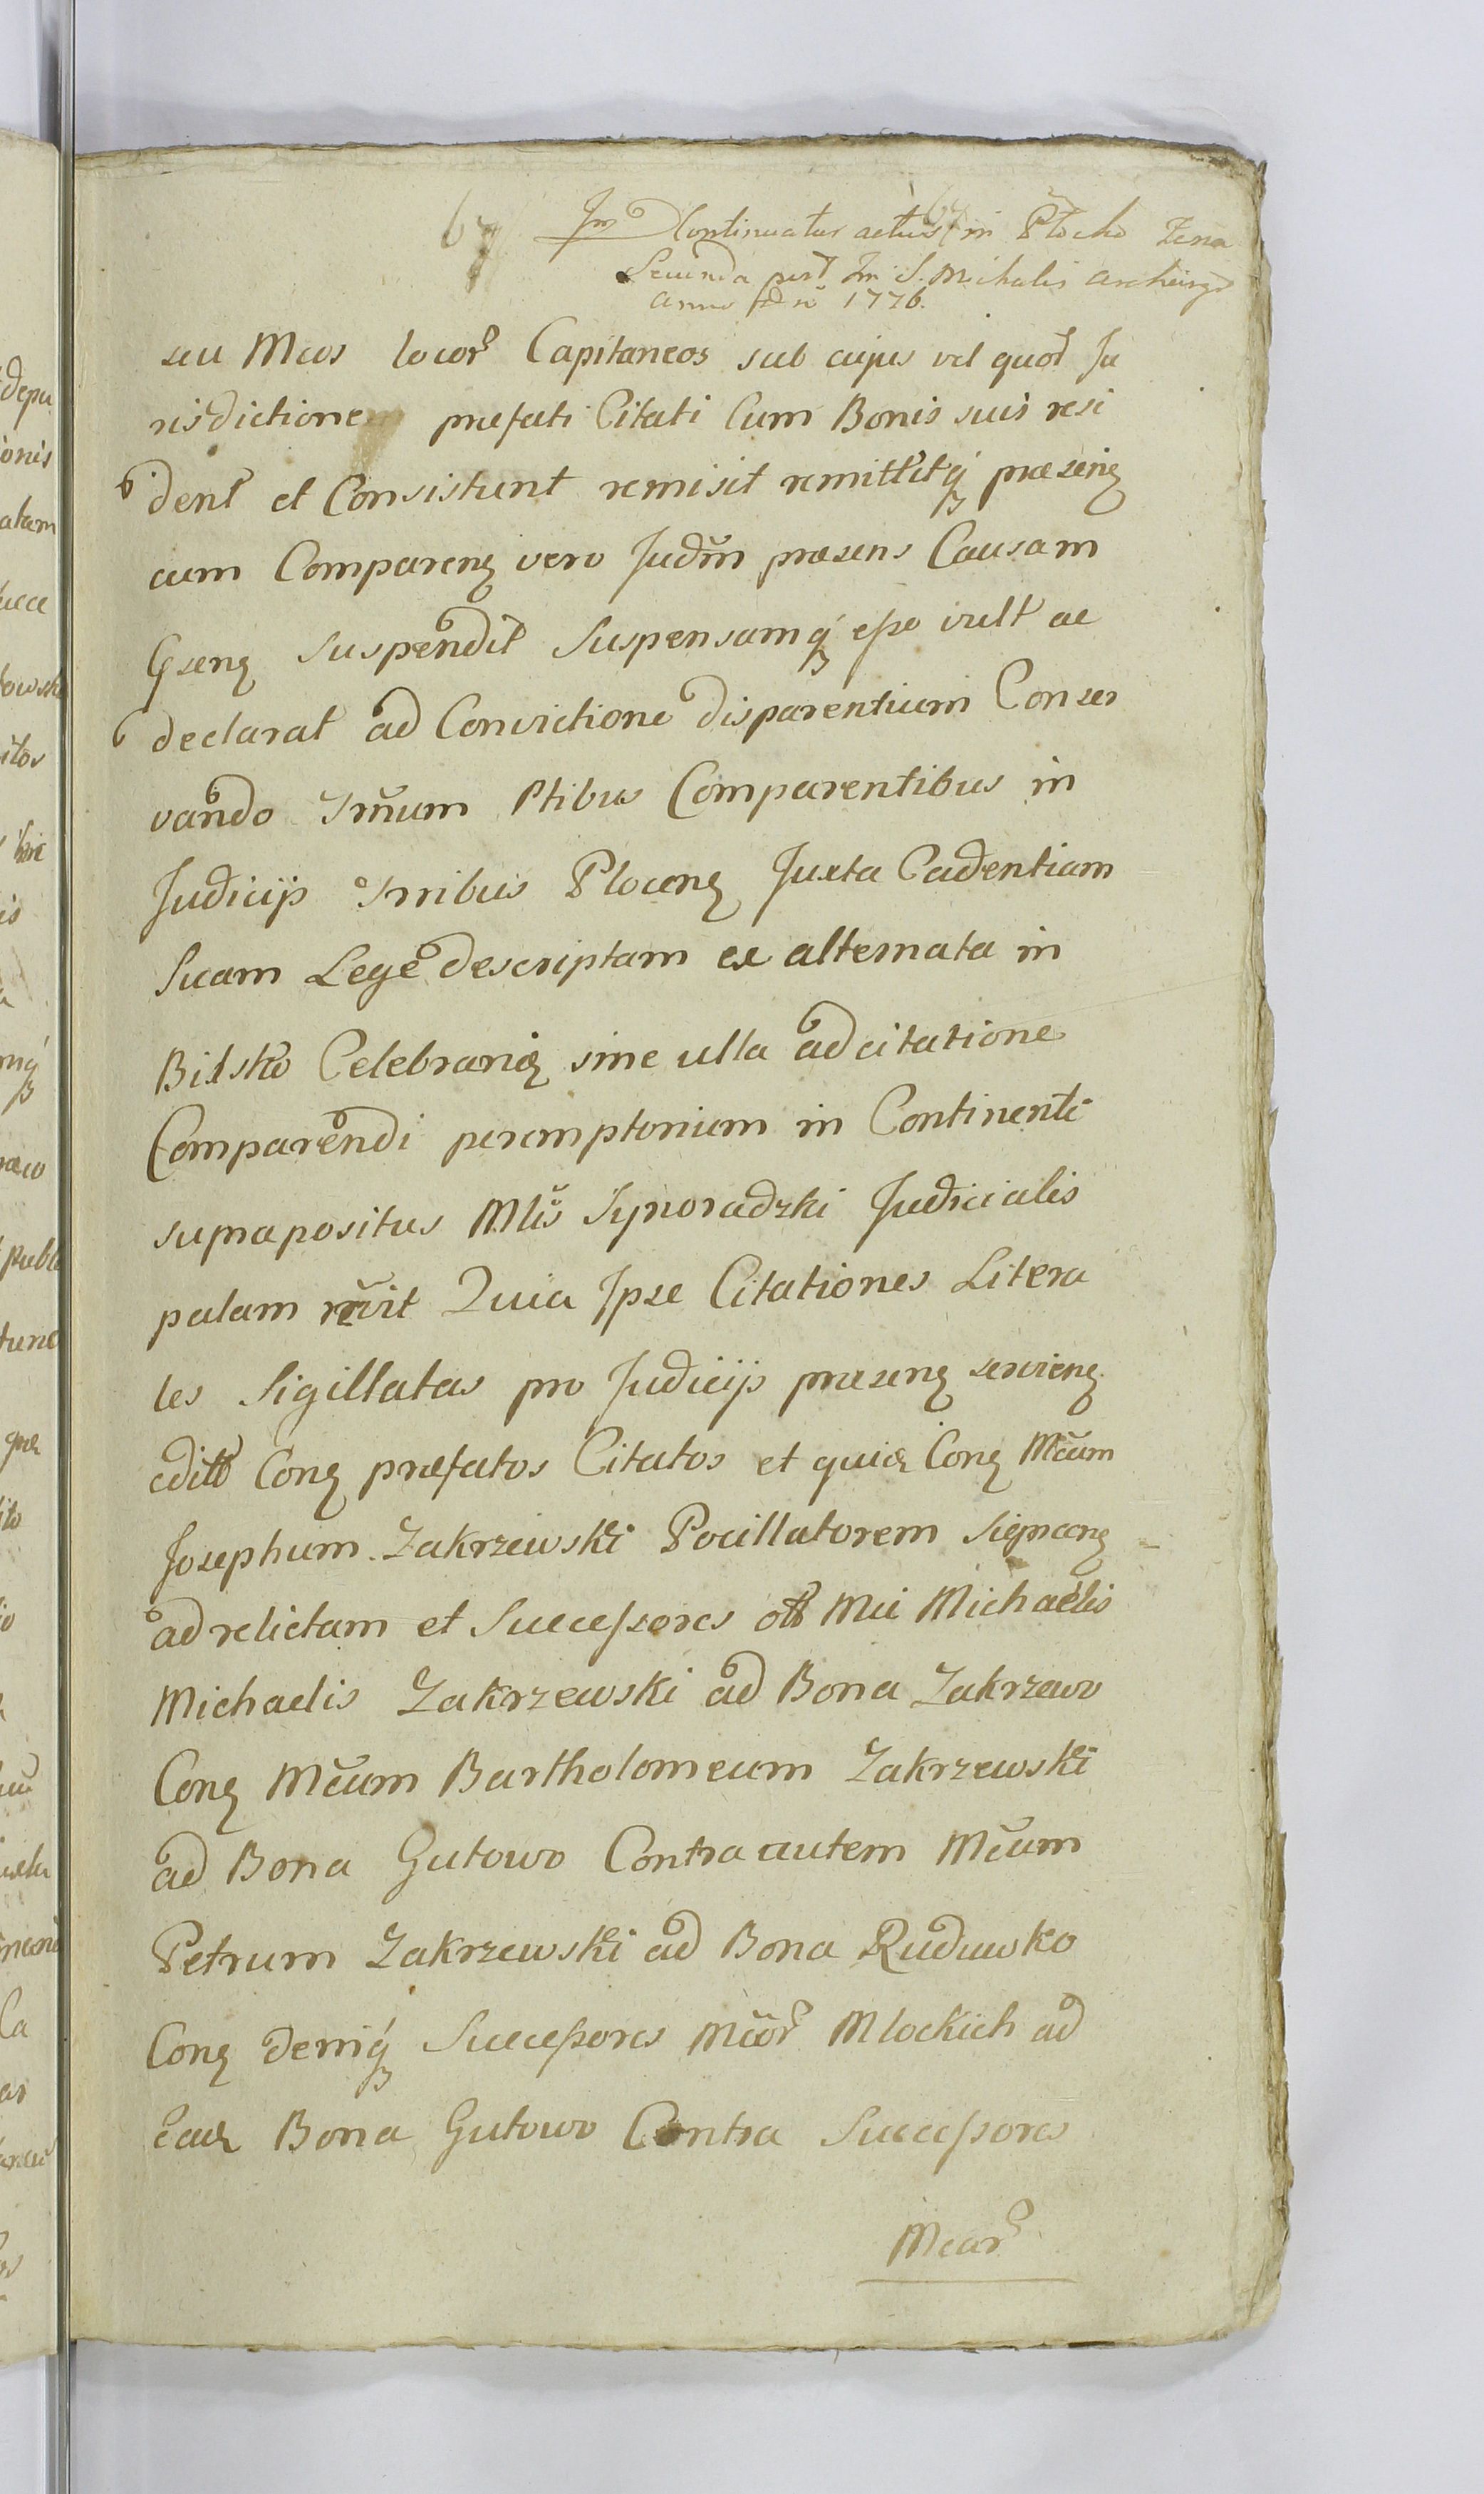 67 Continuatur actus in Płocko
Secunda post S. Michalis
anno 1776.
seu Mcos locor Capitaneos sub cujus vel quor Ju
risdictione præfati Citati Cum Bonis suis resi
dent et Consistunt remisit remittitq præsenẽ
cum Comparenẽ vero Judm præsens Causam
suspendit Suspensamq esse vult ac
declarat ad Convictione disparentium Conser
vando Tmum Ptibus Comparentibus in
Judicijs Tmibus Plocenẽ Juxta Cadentiam
Suam Lege descriptam ex alternata in
Bilsko Celebranẽ sine ulla adcitatione
Comparendi peremptorium in Continenti
suprapositus Mlis Synoradzki Judicialis
palam Quia Ipse Citationes Litera
les Sigillatas pro Judicijs præsenẽ servienẽ
Conẽ præfatos Citatos et quidẽ Conẽ Mcum
Josephum Zakrzewski Pocillatorem
ad relictam et Successores Mci Michaelis
Michaelis Zakrzewski ad Bona Zakrzewo
Conẽ Mcum Bartholomeum Zakrzewski
ad Bona Gutowo Contra autem Mcum
Petrum Zakrzewski ad Bona Ruduwko
Conẽ deniq Successores Mcor Mlockich ad
Bona Gutowo Contra Successores
Mcor